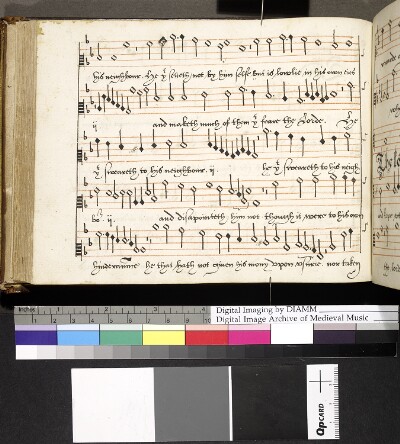 his neighbour. He yͭ seteth not by him self but is lowlie in his own eies
ij and maketh much of them yͭ feare the Lorde. He
yͭ sweareth to his neighbour. ij. he yͭ sweareth to his neigh
boʳ. ij. and disapointeth him not though it were to his own
hinderaunce he that hath not given his mony upon usurie. nor taken
inches 1 2 3 4 5 6 7 8
Digital Imaging by DIAMM
Digital Image Archive of Medieval Music
QPCARD